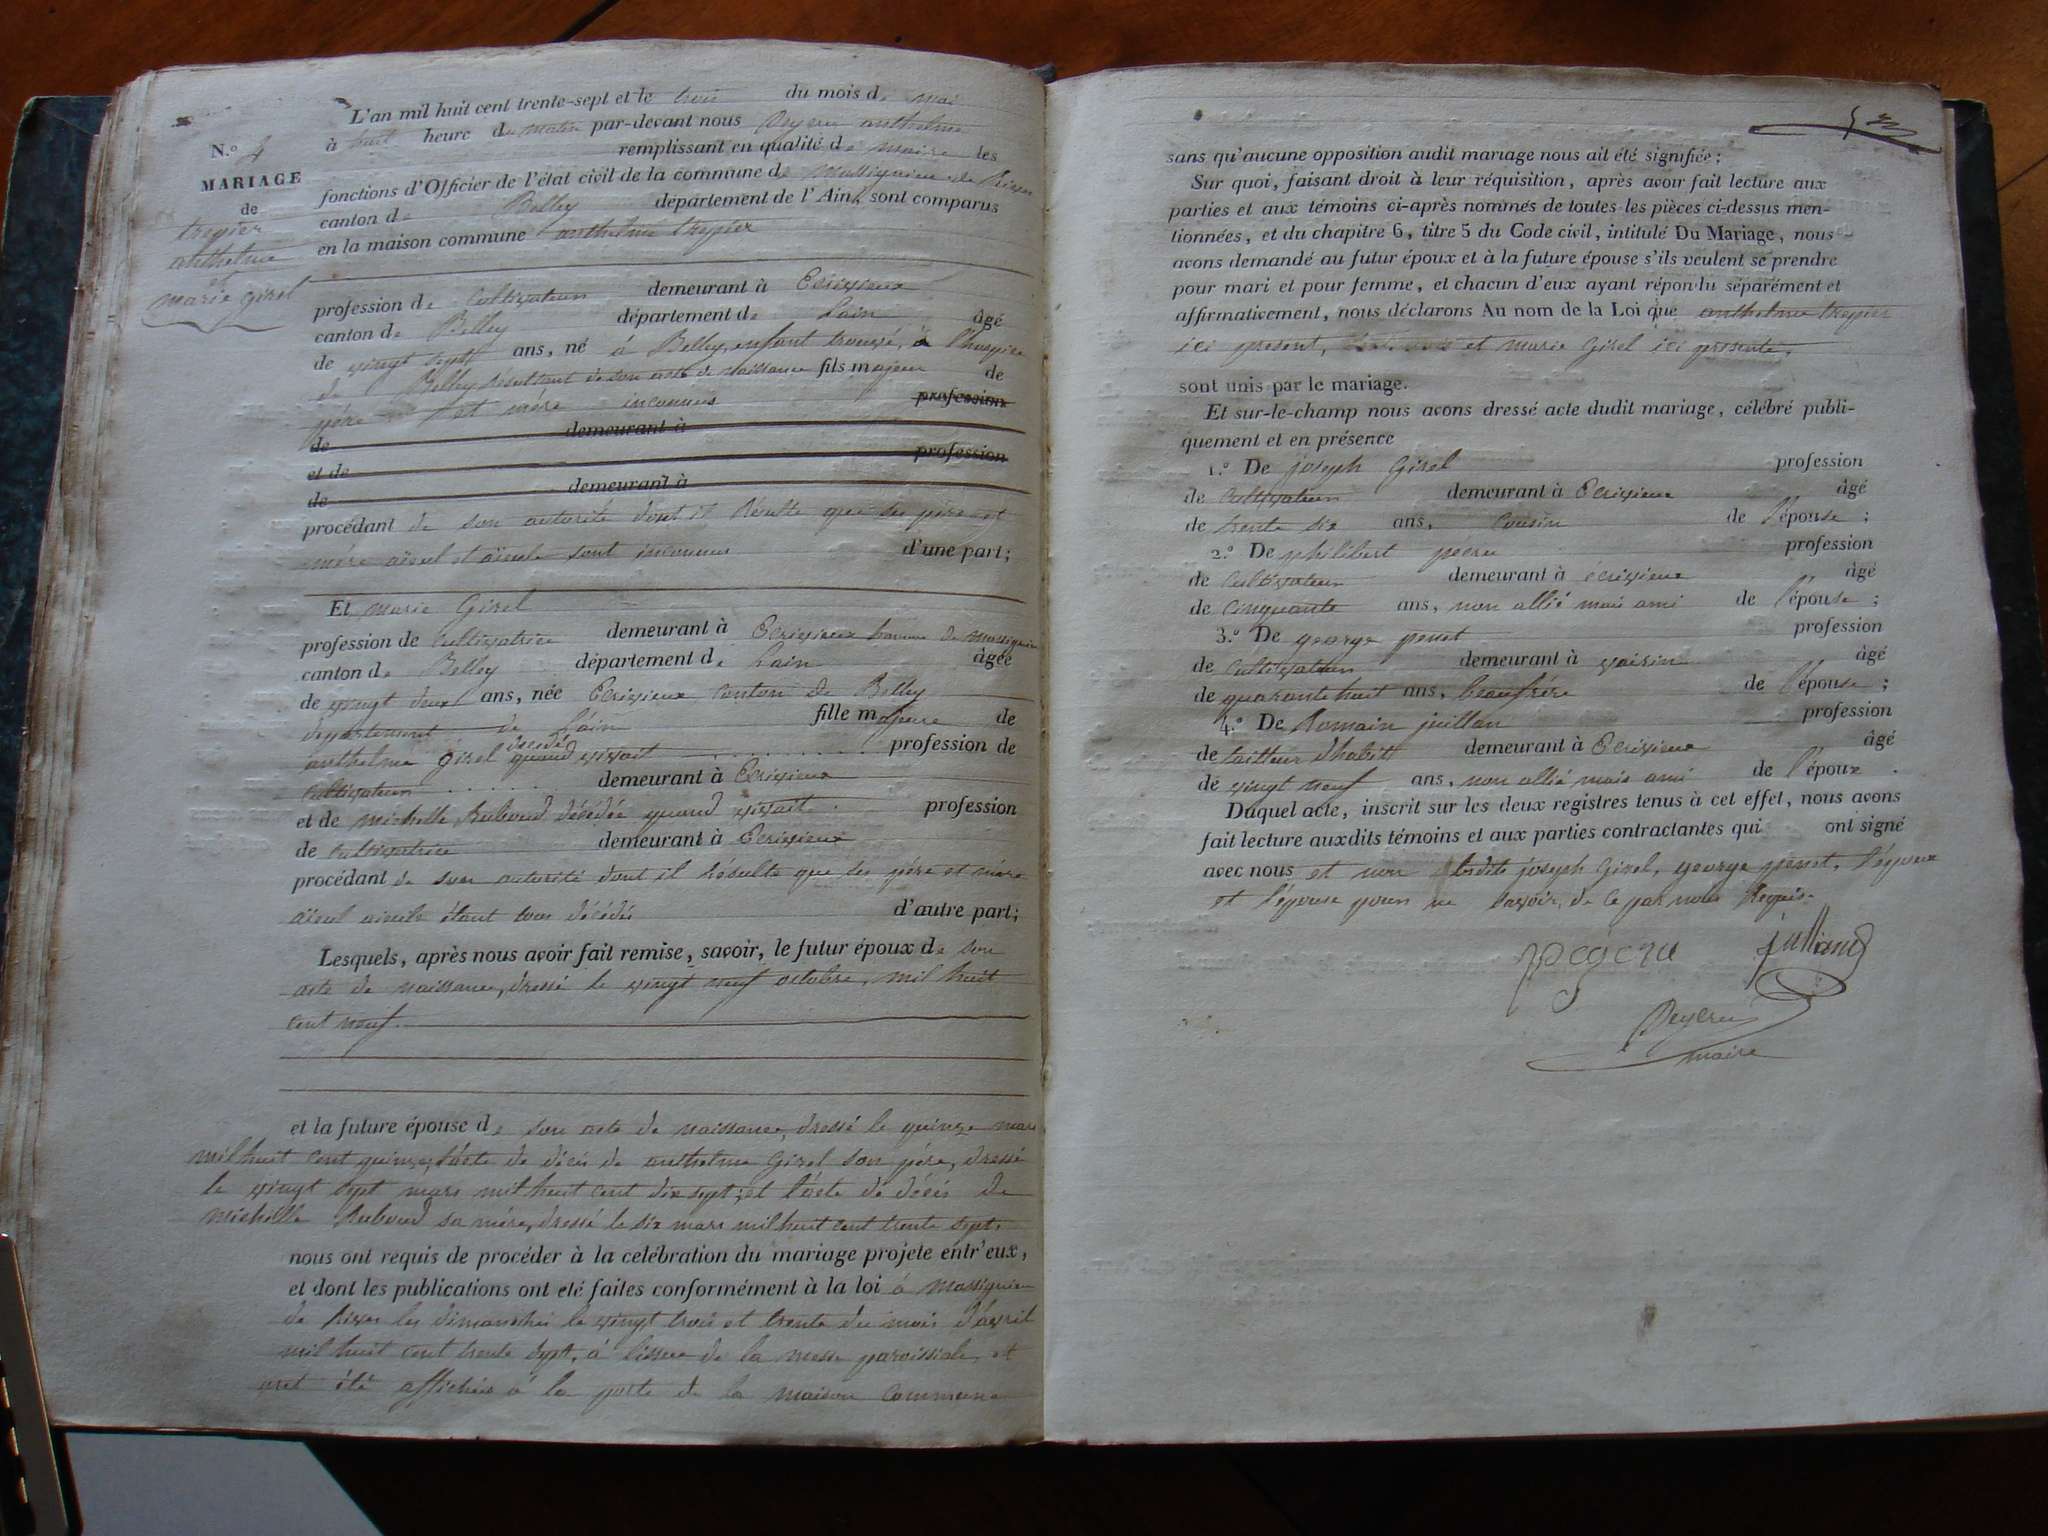 N.o 4
MARIAGE
de
trepier
anthelme
et
marie girel
L'an mil huit cent trente-sept et le trois du mois de mai
à huit heure du matin par-devant nous Peyeru anthelme
remplissant en qualité de maire les
fonctions d'Officier de l'état civil de la commune de Massignieu de Rives
canton de Belley département de l'Ain, sont comparus
en la maison commune anthelme trepier
profession de Cultivateur demeurant à Ecrivieux
canton de Belley département de Lain âgé
de vingt sept ans, né à Belley, enfant trouvé, à l'hospice
de Belley résultant de son acte de naissance fils majeur de
père et mère inconnus profession
de demeurant à
et de profession
de demeurant à
procédant de son autorité dont il résulte que ses père et
mère aïeul et aïeule sont inconnus d'une part;
Et marie Girel
profession de Cultivatrice demeurant à Ecrivieux de massignieu
canton de Belley département de Lain âgée
de vingt deux ans, née Ecrivieux canton de Belley
département de Lain fille majeure de
anthelme girel décédé quand vivait profession de
Cultivateur demeurant à Ecrivieux
et de michelle Ruboud décédée quand vivait profession
de Cultivatrice demeurant à Ecrivieux
procédant de son autorité dont il résulte que ses père et mère
aïeul aieule étant tous décédés d'autre part;
Lesquels, après nous avoir fait remise, savoir, le futur époux de son
acte de naissance, dressé le vingt neuf octobre, mil huit
cent neuf.
et la future épouse de son acte de naissance, dressé le quinze mars
mil huit cent quinze, l'acte de décès de anthelme Girel son père, dressé
le vingt sept mars mil huit cent dix sept; et l'acte de décès de
michelle Ruboud sa mère, dressé le six mars mil huit cent trente sept.
nous ont requis de procéder à la celébration du mariage projete entr'eux,
et dont les publications ont eté faites conformément à la loi à Massignieu
de Rives les dimanches le vingt trois et trente du mois d'avril
mil huit cent trente sept, à lissue de la messe paroissiale, et
ont été affichées à la porte de la maison Commune
sans qu'aucune opposition audit mariage nous ait été signifiée;
Sur quoi, faisant droit à leur réquisition, après avoir fait lecture aux
parties et aux témoins ci-après nommés de toutes les pièces ci-dessus men-
tionnées, et du chapitre 6, titre 5 du Code civil, intitulé Du Mariage, nous
avons demandé au futur époux et à la future épouse s'ils veulent se prendre
pour mari et pour femme, et chacun d'eux ayant répondu séparément et
affirmativement, nous déclarons Au nom de la Loi que anthelme trepier
ici present, et marie Girel ici presente,
sont unis par le mariage.
Et sur-le-champ nous avons dressé acte dudit mariage, célébré publi-
quement et en présence
1.o De joseph Girel profession
de Cultivateur demeurant à Ecrivieux âgé
de trente six ans, Cousin de l'épouse;
2.o De philibert peyeru profession
de Cultivateur demeurant à écrivieux âgé
de cinquante ans, non allié mais ami de l'épouse;
3.o De george penet profession
de Cultivateur demeurant à voirin âgé
de quarante huit ans, beaufrère de l'épouse;
4.o De Romain juillan profession
de tailleur d'habits demeurant à Ecrivieux âgé
de vingt neuf ans, non allié mais ami de l'époux.
Duquel acte, inscrit sur les deux registres tenus à cet effet, nous avons
fait lecture auxdits témoins et aux parties contractantes qui ont signé
avec nous et non lesdits joseph Girel, george penet, l'époux
et l'épouse pour ne savoir, de ce par nous Requis.
peyeru
julliand
Peyeru
maire